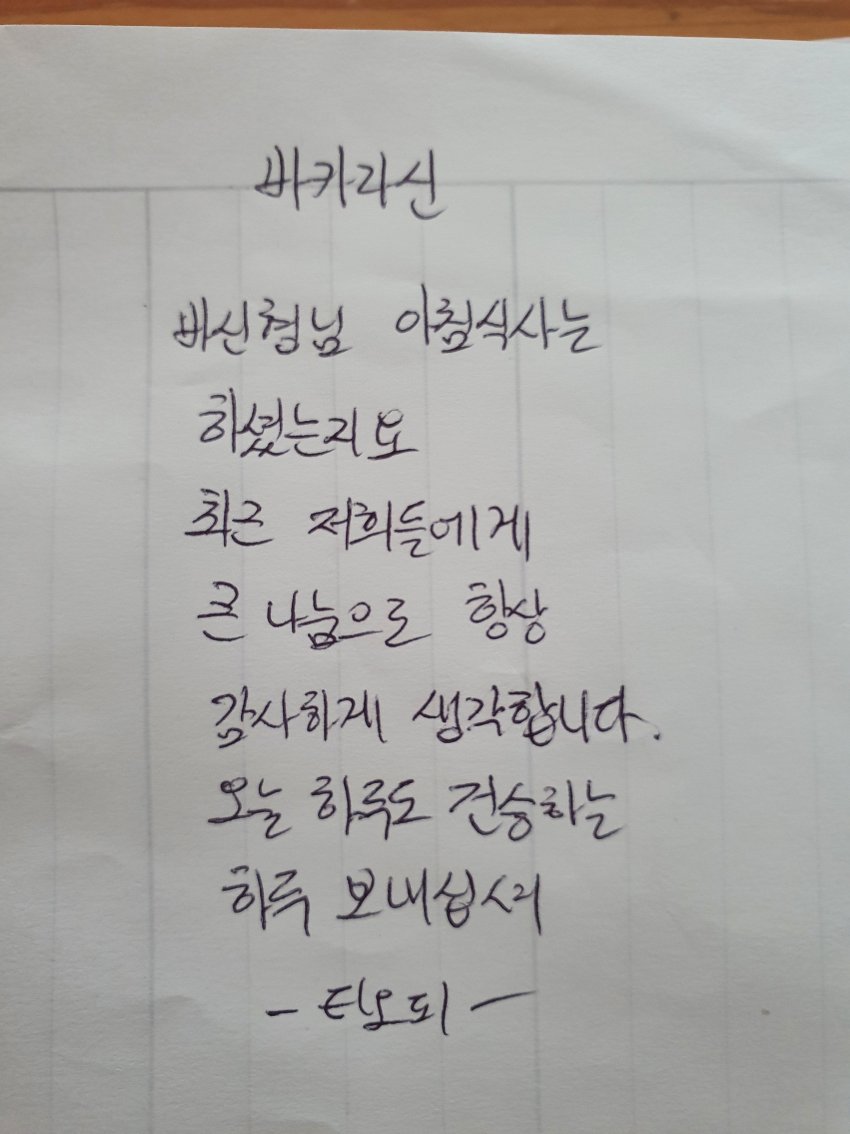 바카라신
바신형님 아침식사는
하셨는지요
최근 저희들에게
큰 나눔으로 항상
감사하게 생각합니다.
오늘 하루도 건승하는
하루 보내십셔